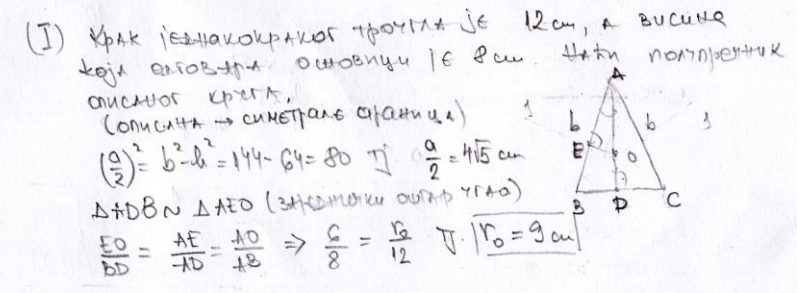 (I) Крак једнакокраког троугла је 12 cm, а висина
која одговара основици је 8 cm. Наћи полупречник
описаног круга.
(описана → симетрале страница)
(a/2)² = b² - h² = 144 - 64 = 80 ⇒ a/2 = 4√5 cm
ΔADB ~ ΔAEO (заједнички оштар угао)
EO/BD = AE/AD = AO/AB ⇒ 6/8 = r₀/12 ⇒ r₀ = 9 cm
A
b b
E O
B D C